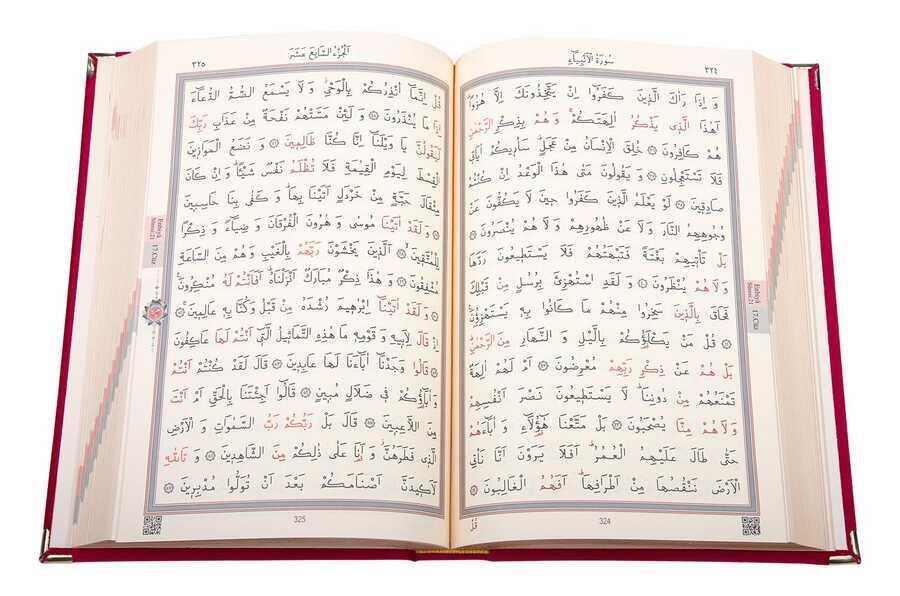 سُورَةُ الْاَنْبِيَٓاءِ
٣٢٤
وَ اِذَا رَاٰكَ الَّذ۪ينَ كَفَرُٓوا اِنْ يَتَّخِذُونَكَ اِلَّا هُزُوًاۜ
اَهٰذَا الَّذ۪ي يَذْكُرُ اٰلِهَتَكُمْۚ وَ هُمْ بِذِكْرِ الرَّحْمٰنِ
هُمْ كَافِرُونَ ﴿٣٦﴾ خُلِقَ الْاِنْسَانُ مِنْ عَجَلٍۜ سَاُر۪يكُمْ اٰيَات۪ي
فَلَا تَسْتَعْجِلُونِ ﴿٣٧﴾ وَ يَقُولُونَ مَتٰى هٰذَا الْوَعْدُ اِنْ كُنْتُمْ
صَادِق۪ينَ ﴿٣٨﴾ لَوْ يَعْلَمُ الَّذ۪ينَ كَفَرُوا ح۪ينَ لَا يَكُفُّونَ عَنْ
وُجُوهِهِمُ النَّارَ وَ لَا عَنْ ظُهُورِهِمْ وَ لَا هُمْ يُنْصَرُونَ ﴿٣٩﴾
بَلْ تَأْت۪يهِمْ بَغْتَةً فَتَبْهَتُهُمْ فَلَا يَسْتَط۪يعُونَ رَدَّهَا
وَ لَا هُمْ يُنْظَرُونَ ﴿٤٠﴾ وَ لَقَدِ اسْتُهْزِئَ بِرُسُلٍ مِنْ قَبْلِكَ
فَحَاقَ بِالَّذ۪ينَ سَخِرُوا مِنْهُمْ مَا كَانُوا بِه۪ يَسْتَهْزِؤُ۫نَ ﴿٤١﴾
قُلْ مَنْ يَكْلَؤُ۬كُمْ بِالَّيْلِ وَ النَّهَارِ مِنَ الرَّحْمٰنِۜ
بَلْ هُمْ عَنْ ذِكْرِ رَبِّهِمْ مُعْرِضُونَ ﴿٤٢﴾ اَمْ لَهُمْ اٰلِهَةٌ
تَمْنَعُهُمْ مِنْ دُونِنَاۜ لَا يَسْتَط۪يعُونَ نَصْرَ اَنْفُسِهِمْ
وَ لَا هُمْ مِنَّا يُصْحَبُونَ ﴿٤٣﴾ بَلْ مَتَّعْنَا هٰٓؤُ۬لَٓاءِ وَ اٰبَٓاءَهُمْ
حَتّٰى طَالَ عَلَيْهِمُ الْعُمُرُۜ اَفَلَا يَرَوْنَ اَنَّا نَأْتِي
الْاَرْضَ نَنْقُصُهَا مِنْ اَطْرَافِهَاۜ اَفَهُمُ الْغَالِبُونَ ﴿٤٤﴾
324
قُلْ
Enbiyâ
Sûresi 21
17. Cüz
اَلْجُزْءُ السَّابِعَ عَشَرَ
٣٢٥
قُلْ اِنَّمَٓا اُنْذِرُكُمْ بِالْوَحْيِۘ وَ لَا يَسْمَعُ الصُّمُّ الدُّعَٓاءَ
اِذَا مَا يُنْذَرُونَ ﴿٤٥﴾ وَ لَئِنْ مَسَّتْهُمْ نَفْحَةٌ مِنْ عَذَابِ رَبِّكَ
لَيَقُولُنَّ يَا وَيْلَنَٓا اِنَّا كُنَّا ظَالِم۪ينَ ﴿٤٦﴾ وَ نَضَعُ الْمَوَاز۪ينَ
الْقِسْطَ لِيَوْمِ الْقِيٰمَةِ فَلَا تُظْلَمُ نَفْسٌ شَيْـًٔاۜ وَ اِنْ كَانَ
مِثْقَالَ حَبَّةٍ مِنْ خَرْدَلٍ اَتَيْنَا بِهَاۜ وَ كَفٰى بِنَا حَاسِب۪ينَ
﴿٤٧﴾ وَ لَقَدْ اٰتَيْنَا مُوسٰى وَ هٰرُونَ الْفُرْقَانَ وَ ضِيَٓاءً وَ ذِكْرًا
لِلْمُتَّق۪ينَۙ ﴿٤٨﴾ اَلَّذ۪ينَ يَخْشَوْنَ رَبَّهُمْ بِالْغَيْبِ وَ هُمْ مِنَ السَّاعَةِ
مُشْفِقُونَ ﴿٤٩﴾ وَ هٰذَا ذِكْرٌ مُبَارَكٌ اَنْزَلْنَاهُۜ اَفَاَنْتُمْ لَهُ مُنْكِرُونَ۟
﴿٥٠﴾ وَ لَقَدْ اٰتَيْنَٓا اِبْرٰه۪يمَ رُشْدَهُ مِنْ قَبْلُ وَ كُنَّا بِه۪ عَالِم۪ينَۚ ﴿٥١﴾
اِذْ قَالَ لِاَب۪يهِ وَ قَوْمِه۪ مَا هٰذِهِ التَّمَاث۪يلُ الَّت۪ٓي اَنْتُمْ لَهَا عَاكِفُونَ
﴿٥٢﴾ قَالُوا وَجَدْنَٓا اٰبَٓاءَنَا لَهَا عَابِد۪ينَ ﴿٥٣﴾ قَالَ لَقَدْ كُنْتُمْ اَنْتُمْ
وَ اٰبَٓاؤُ۬كُمْ ف۪ي ضَلَالٍ مُب۪ينٍ ﴿٥٤﴾ قَالُٓوا اَجِئْتَنَا بِالْحَقِّ اَمْ اَنْتَ
مِنَ اللَّاعِب۪ينَ ﴿٥٥﴾ قَالَ بَلْ رَبُّكُمْ رَبُّ السَّمٰوَاتِ وَ الْاَرْضِ
الَّذ۪ي فَطَرَهُنَّۘ وَ اَنَا۬ عَلٰى ذٰلِكُمْ مِنَ الشَّاهِد۪ينَ ﴿٥٦﴾ وَ تَاللّٰهِ
لَاَك۪يدَنَّ اَصْنَامَكُمْ بَعْدَ اَنْ تُوَلُّوا مُدْبِر۪ينَ ﴿٥٧﴾
325
Enbiyâ
Sûresi 21
17. Cüz